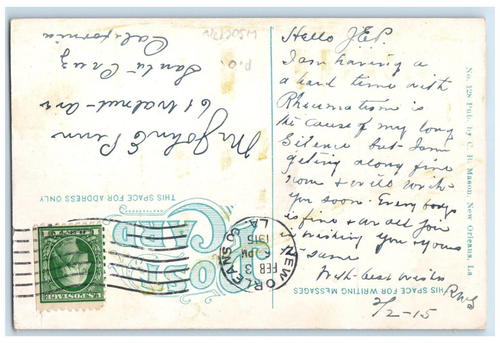 Hello J.E.P.
I am having a
a hard time with
Rheumatism is
the cause of my long
Silence but I am
geting along fine
now & will write
you soon. Every body
is fine & all join
in wishing you & yours
same
With best wishes
R.W.S.
2/2-15
THIS SPACE FOR WRITING MESSAGES
No. 128 Pub. by C. B. Mason, New Orleans, La
Mr John E Penn
61 Walnut-Ave
Santa Cruz
California
P.O.
THIS SPACE FOR ADDRESS ONLY
POST CARD
NEW ORLEANS
LA.
FEB 3
PM
1915
U.S. POSTAGE